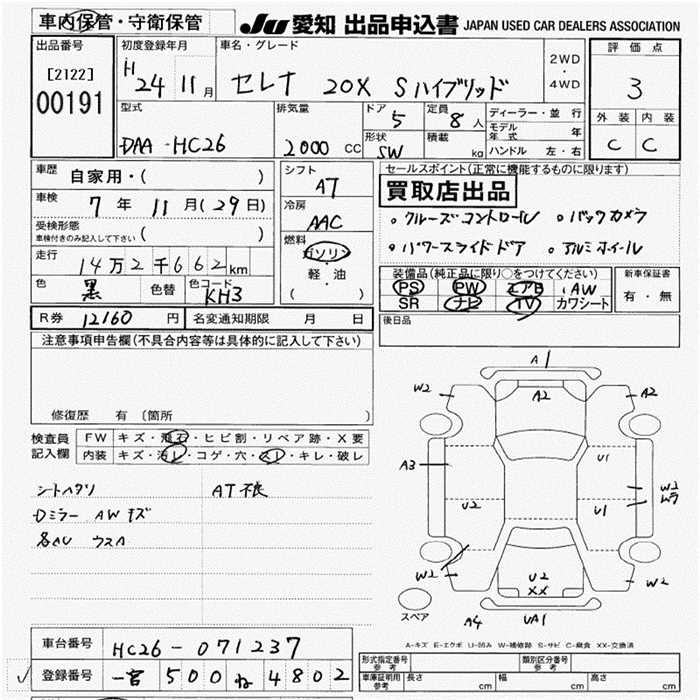 車内保管・守衛保管
JU 愛知 出品申込書 JAPAN USED CAR DEALERS ASSOCIATION
出品番号
[2122]
00191
初度登録年月
H 24 11月
車名・グレード
セレナ 20X Sハイブリッド
2WD
・
4WD
評価点
3
外装 内装
C C
型式
DAA-HC26
排気量
2000 CC
ドア
5
定員
8人
形状
SW
積載
kg
ディーラー・並 行
モデル年式 年
ハンドル 左・右
車歴
自家用・( )
車検
7年 11月(29日)
受検形態
車検付きのみ記入して下さい ( )
走行
14万2千662km
色
黒
色替
色コード
KH3
シフト
AT
冷房
AAC
燃料
ガソリン
・
軽・油
( )
セールスポイント(正常に機能するものに限ります)
買取店出品
。クルーズコントロール 。バックカメラ
。パワースライドドア 。アルミホイール
装備品(純正品に限り○をつけてください)
PS PW エアB AW
SR ナビ TV カワシート
新車保証書
有・無
R券 12160 円 名変通知期限 月 日
後日品
注意事項申告欄(不具合内容等は具体的に記入して下さい)
修復歴 有 〔箇所 〕
検査員
記入欄
FW キズ・飛石・ヒビ割・リペア跡・X要
内装 キズ・汚レ・コゲ・穴・スレ・キレ・破レ
シートヘタリ AT不良
Dミラー AW キズ
各AU ウスA
A1
W2 A2 A2
A3 U1
U2 U1 W3
W2 U2 XX W2
スペア
A4 UA1
A-キズ E-エクボ U-凹み W-補修跡 S-サビ C-腐食 XX-交換済
車台番号 HC26-071237
登録番号 一宮 500 ね 4802
型式指定番号
参考
類別区分番号
参考
車庫証明用
参考
長さ cm 幅 cm 高さ cm